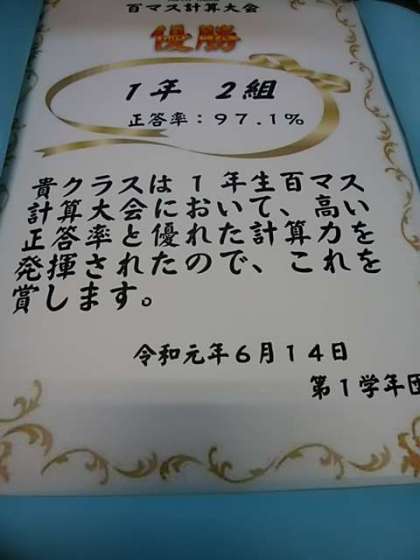 百マス計算大会
優勝
1年 2組
正答率：97.1%
貴クラスは1年生百マス
計算大会において、高い
正答率と優れた計算力を
発揮されたので、これを
賞します。
令和元年6月14日
第1学年団